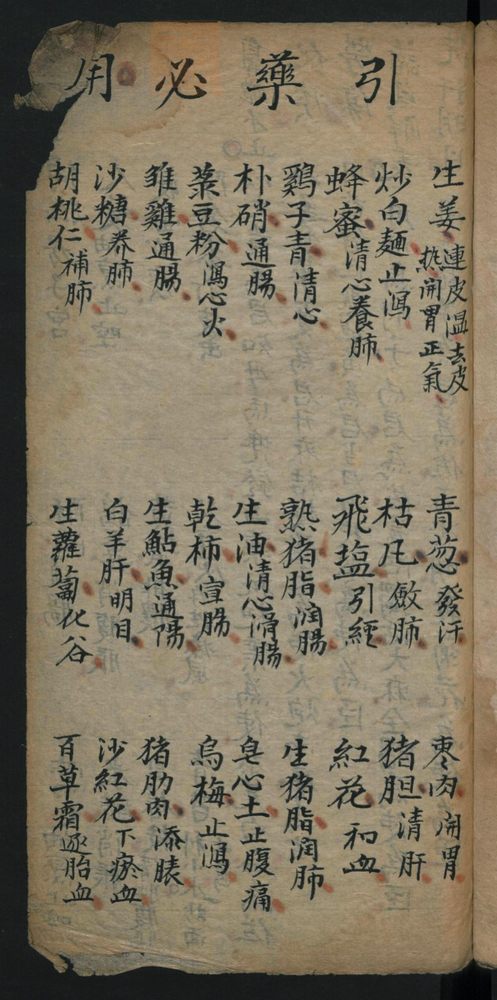 引藥必用
生姜 連皮温去皮热開胃正氣
青葱 發汗
棗肉 開胃
炒白麺 止瀉
枯凡 斂肺
猪胆 清肝
蜂蜜 清心養肺
飛塩 引經
紅花 和血
鷄子青 清心
熟猪脂 润腸
生猪脂 润肺
朴硝 通腸
生油 清心滑腸
皂心土 止腹痛
菉豆粉 瀉心火
乾柿 宣腸
烏梅 止瀉
雏雞 通腸
生鮎魚 通陽
猪肋肉 添膘
沙糖 养肺
白羊肝 明目
沙紅花 下瘀血
胡桃仁 補肺
生蘿蔔 化谷
百草霜 逐胎血